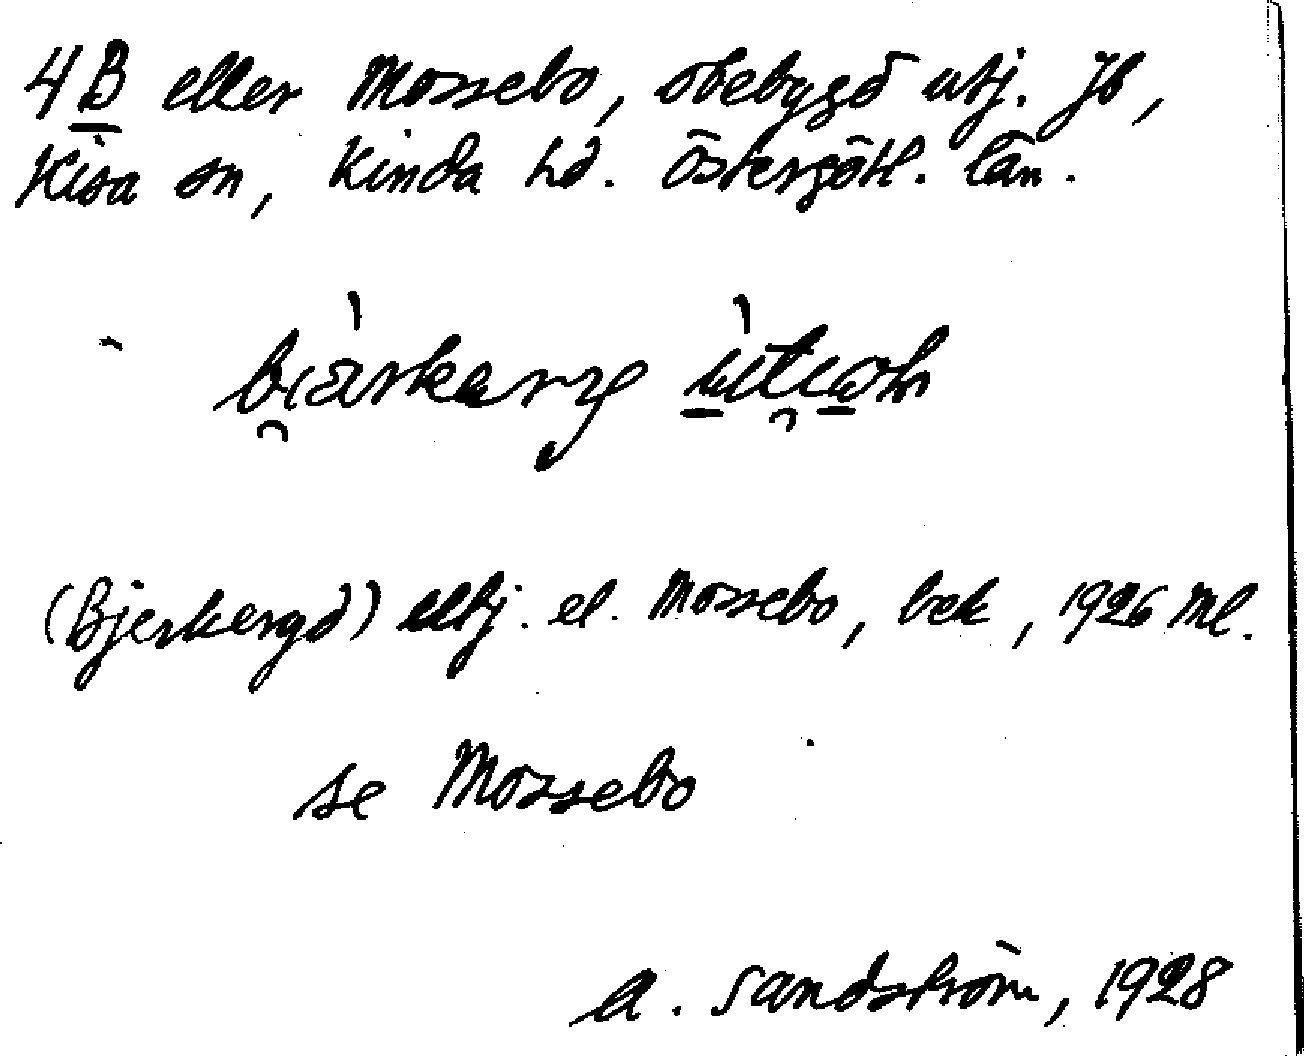 4B eller Mossebo, obebyggd utj. Jb,
Kisa sn, Kinda hd. Östergötl. län.
(Bjerkergd) utj. el. Mossebo, bek, 1926 Ml.
se Mossebo
A. Sandström, 1928